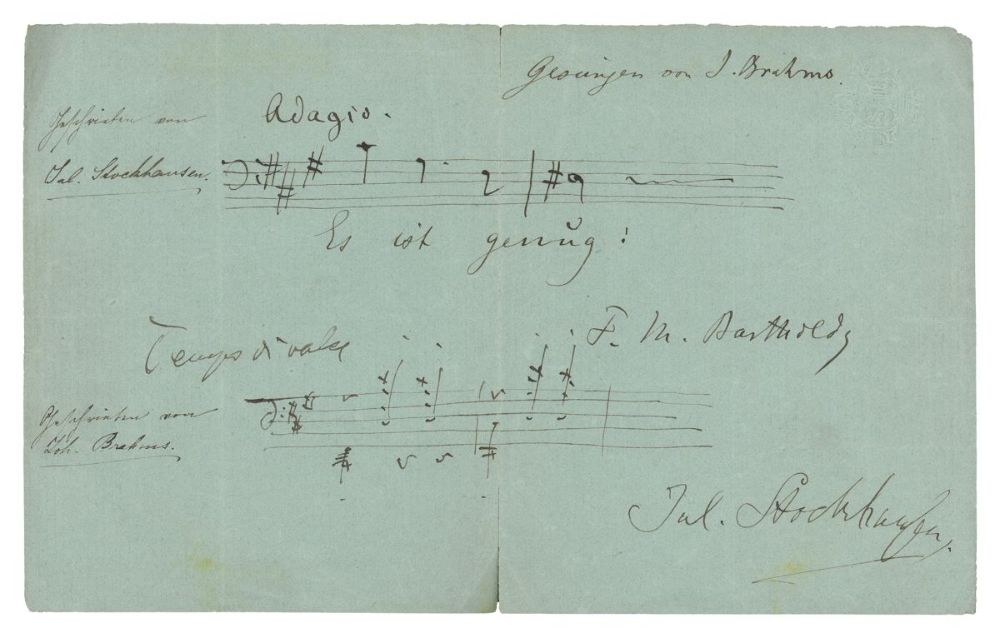 Gesungen von J. Brahms.
Adagio.
Geschrieben von
Jul. Stockhausen.
Es ist genug!
Tempo di valse
F. M. Bartholdy
Geschrieben von
Joh. Brahms.
Jul. Stockhausen.